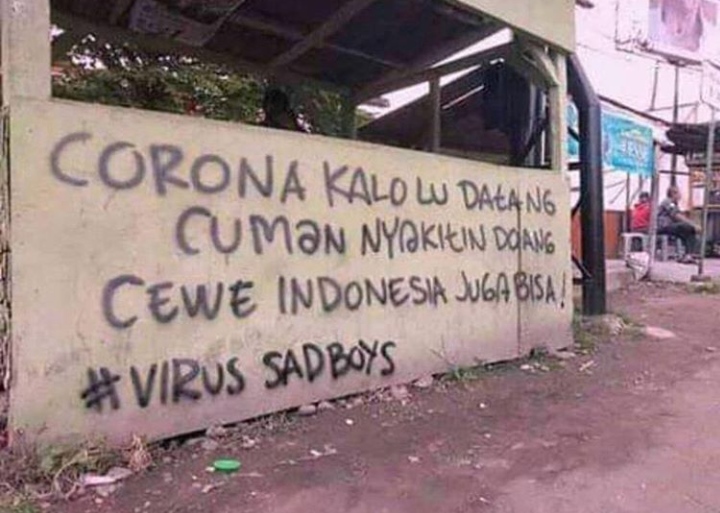 CORONA KALO LU DATANG
CUMAN NYAKITIN DOANG
CEWE INDONESIA JUGA BISA!
#VIRUS SADBOYS